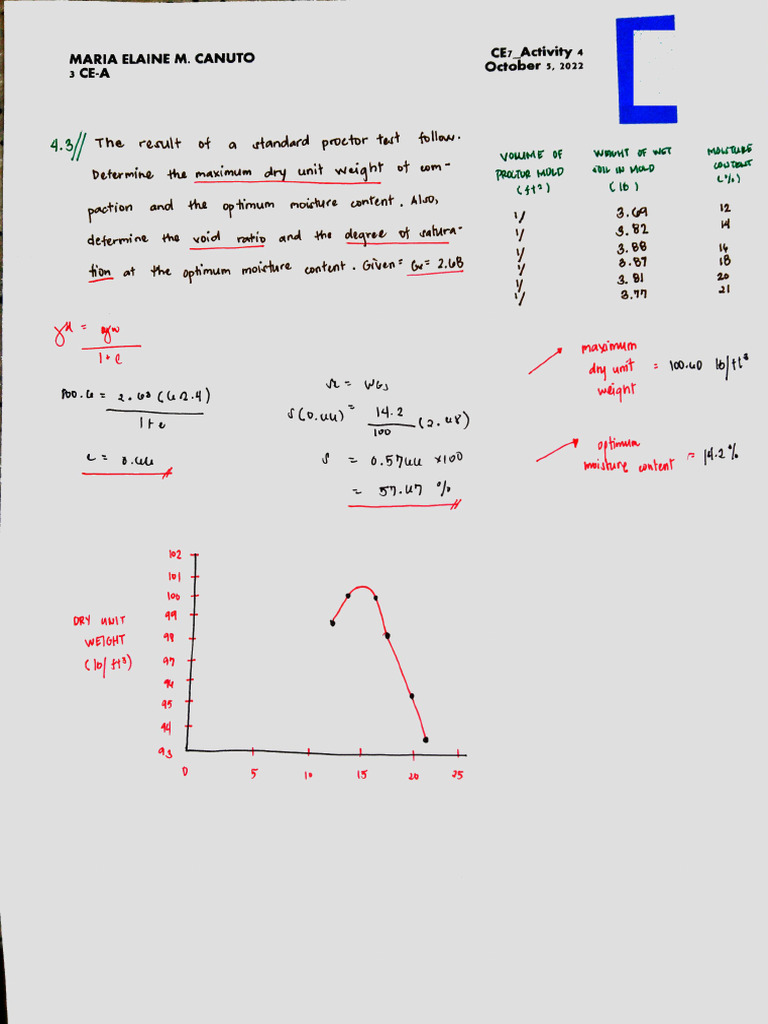 MARIA ELAINE M. CANUTO
3 CE-A
CE7_Activity 4
October 5, 2022
4.3// The result of a standard proctor test follow.
Determine the maximum dry unit weight of com-
paction and the optimum moisture content. Also,
determine the void ratio and the degree of satura-
tion at the optimum moisture content. Given= Gs= 2.68
VOLUME OF PROCTOR MOLD (ft²)
WEIGHT OF WET SOIL IN MOLD (lb)
MOISTURE CONTENT (%)
1/ 3.69 12
1/ 3.82 14
1/ 3.88 16
1/ 3.87 18
1/ 3.81 20
1/ 3.77 21
1+e
100.6 = 2.68 (62.4)
1+e
e = 0.66
= WGs
S(0.66) = 14.2
100 (2.68)
S = 0.5766 x100
= 57.67 %
maximum
dry unit = 100.60 lb/ft³
weight
optimum
moisture content = 14.2%
DRY UNIT
WEIGHT
(lb/ft³)
102
101
100
99
98
97
96
95
94
93
0 5 10 15 20 25